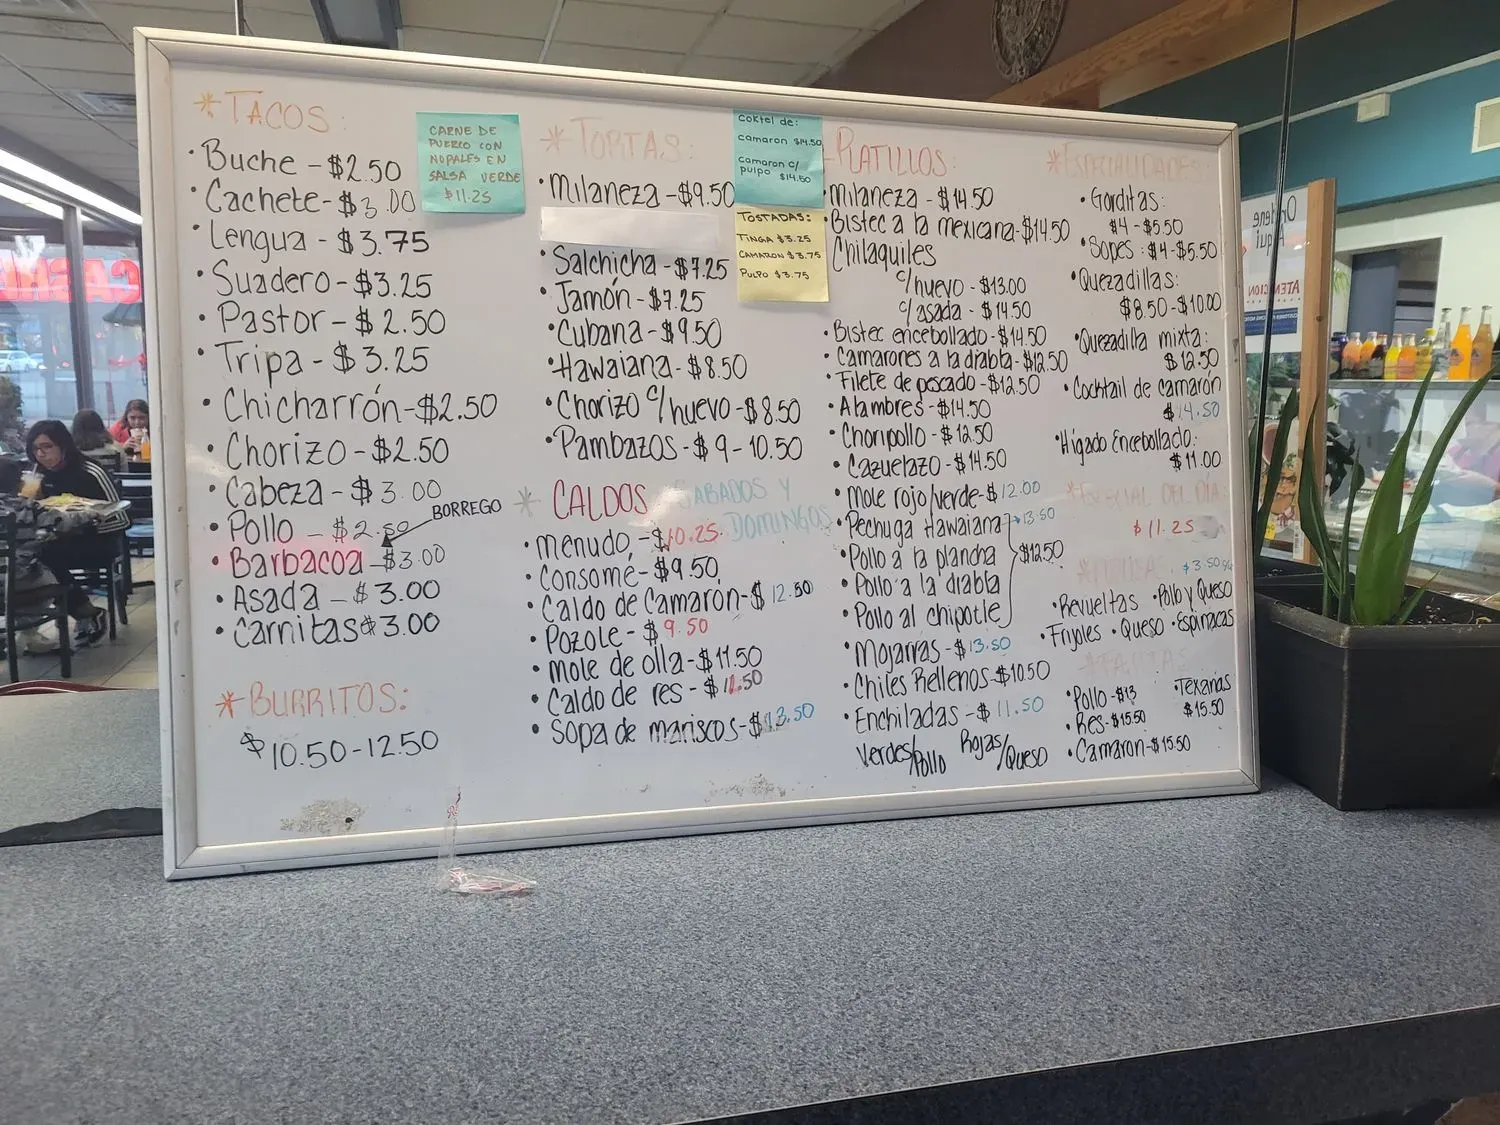 *TACOS:
• Buche - $2.50
• Cachete - $3.00
• Lengua - $3.75
• Suadero - $3.25
• Pastor - $2.50
• Tripa - $3.25
• Chicharrón - $2.50
• Chorizo - $2.50
• Cabeza - $3.00
• Pollo - $2.50
BORREGO
• Barbacoa - $3.00
• Asada - $3.00
• Carnitas $3.00
*BURRITOS:
$10.50-12.50
CARNE DE
PUERCO CON
NOPALES EN
SALSA VERDE
$11.25
*TORTAS:
• Milaneza - $9.50
• Salchicha - $7.25
• Jamón - $7.25
• Cubana - $9.50
• Hawaiana - $8.50
• Chorizo c/huevo - $8.50
• Pambazos - $9 - 10.50
* CALDOS SABADOS Y
DOMINGOS
• Menudo, - $10.25.
• Consome - $9.50
• Caldo de Camarón - $12.50
• Pozole - $9.50
• mole de olla - $11.50
• Caldo de res - $11.50
• Sopa de mariscos - $13.50
Coktel de:
camaron $14.50
camaron c/
pulpo $14.50
TOSTADAS:
TINGA $3.25
CAMARON $3.75
PULPO $3.75
PLATILLOS:
• Milaneza - $14.50
• Bistec a la mexicana - $14.50
• Chilaquiles
c/huevo - $13.00
c/asada - $14.50
• Bistec encebollado - $14.50
• Camarones a la diabla - $12.50
• Filete de pescado - $12.50
• Alambres - $14.50
• Choripollo - $12.50
• Cazuelazo - $14.50
• Mole rojo/verde - $12.00
• Pechuga Hawaiana 13.50
• Pollo a la plancha $12.50
• Pollo a la diabla
• Pollo al chipotle
• Mojarras - $13.50
• Chiles Rellenos - $10.50
• Enchiladas - $11.50
Verdes/Pollo Rojas/Queso
*ESPECIALIDADES:
• Gorditas:
$4 - $5.50
• Sopes: $4 - $5.50
• Quezadillas:
$8.50 - $10.00
• Quezadilla mixta:
$12.50
• Cocktail de camarón
$14.50
• Higado Encebollado:
$11.00
*ESPECIAL DEL DIA:
$11.25
$3.50
• Revueltas • Pollo y Queso
• Frijoles • Queso • Espinacas
*FAJITAS
• Pollo - $13
• Texanas
$15.50
• Res - $15.50
• Camaron - $15.50